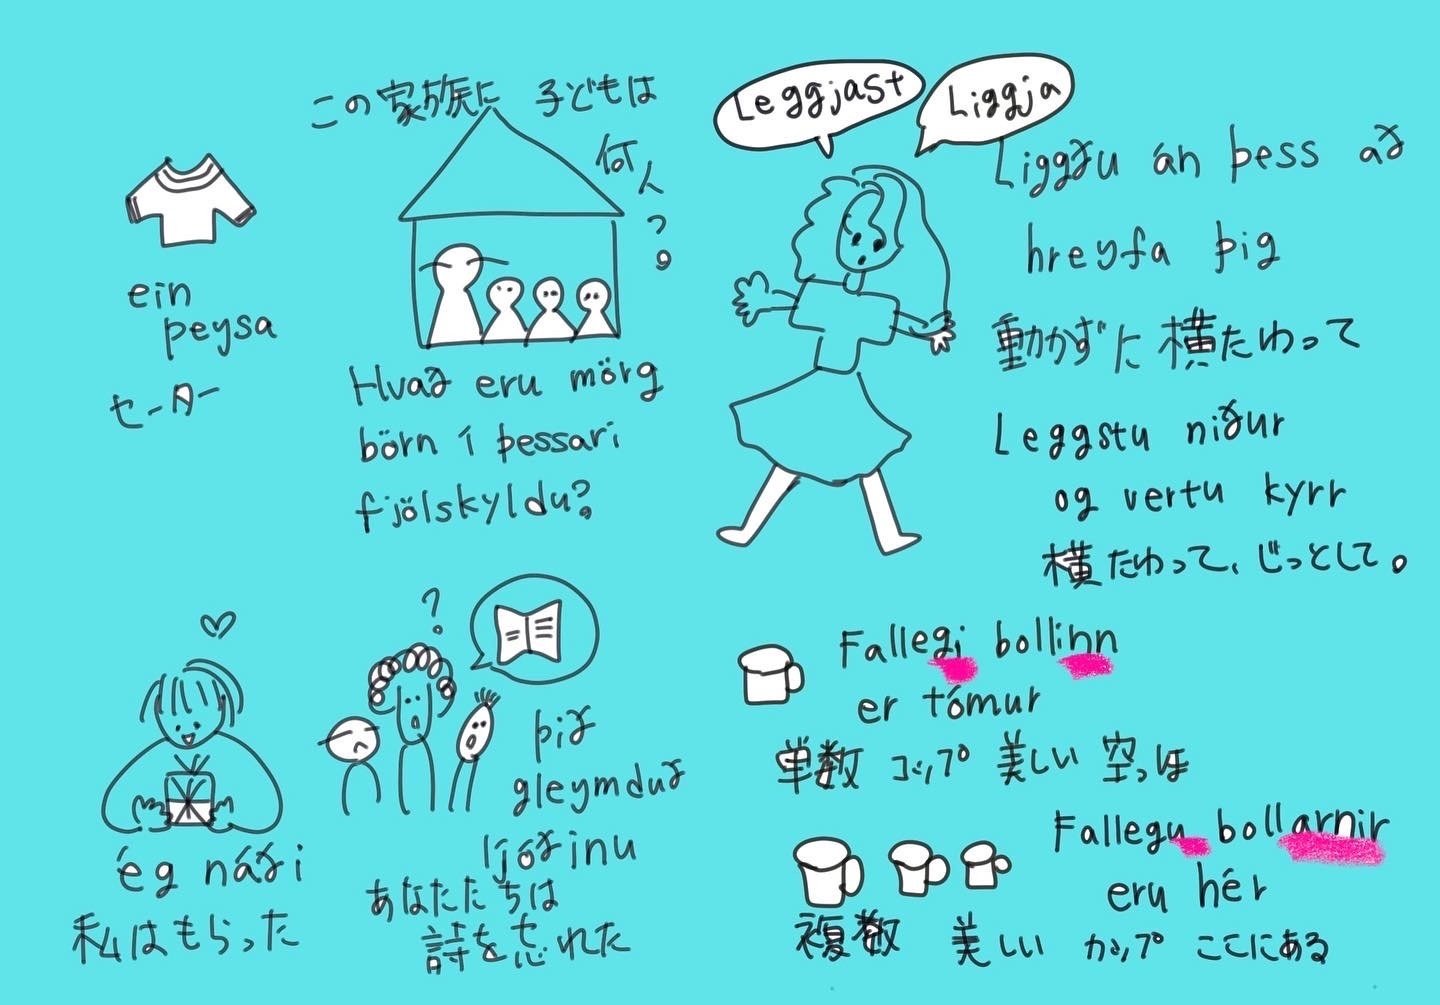 この家族に 子どもは
何
人
?
ein
peysa
セーター
Hvað eru mörg
börn í þessari
fjölskyldu?
Leggjast
Liggja
Liggðu án þess að
hreyfa þig
動かずに横たわって
Leggstu niður
og vertu kyrr
横たわって、じっとして。
ég náði
私はもらった
?
þið
gleymduð
ljóðinu
あなたたちは
詩を忘れた
Fallegi bollinn
er tómur
単数 コップ 美しい 空っぽ
Fallegu bollarnir
eru hér
複数 美しい カップ ここにある